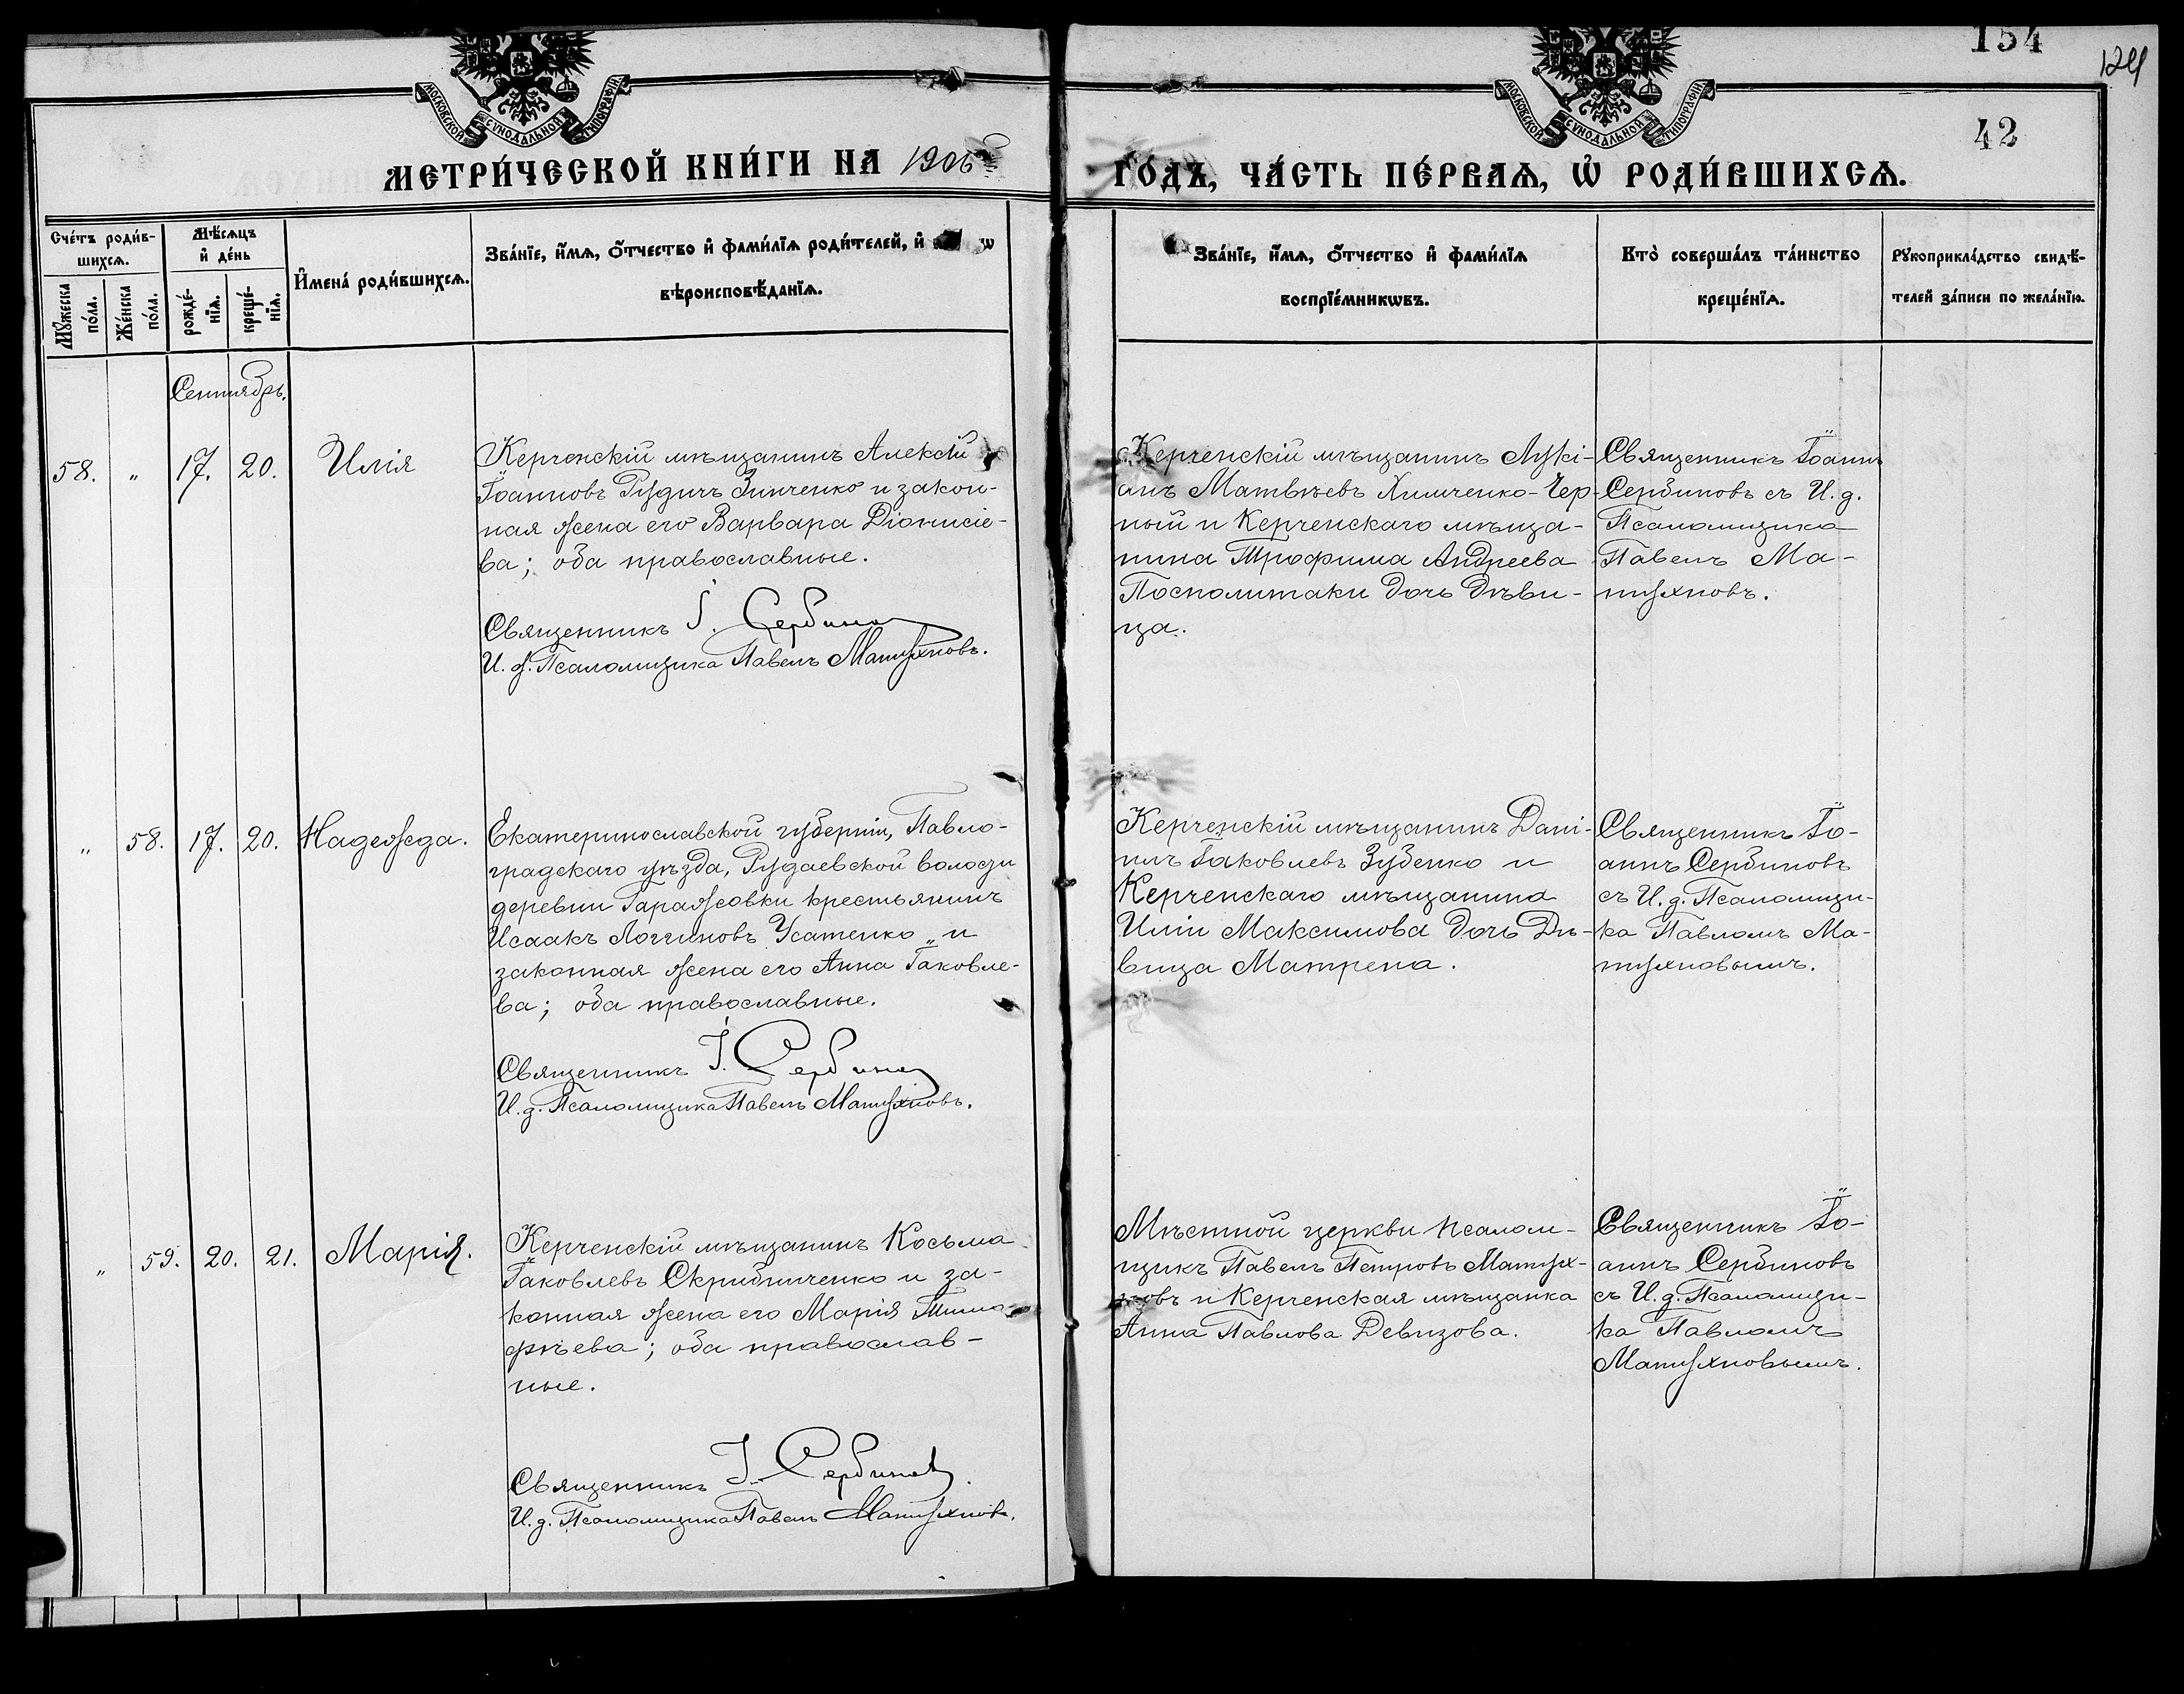 154
124
42
МОСКОВСКОЙ СѴНОДАЛЬНОЙ ТИПОГРАФІИ
МОСКОВСКОЙ СѴНОДАЛЬНОЙ ТИПОГРАФІИ
МЕТРИ́ЧЕСКОЙ КНИ́ГИ НА 1906
ГО́ДЪ, ЧА́СТЬ ПЕ́РВАѦ, Ѡ҆ РОДИ́ВШИХСѦ.
Сче́тъ роди́в-
шихсѧ.
Мѣ́сѧцъ
и҆ де́нь
Мꙋ́жеска
по́ла.
Же́нска
по́ла.
рожде́-
нїѧ.
креще́-
нїѧ.
И҆мена̀ роди́вшихсѧ.
Зва́нїе, и҆́мѧ, ѻ҆́тчество и҆ фами́лїѧ роди́телей, и҆ ѡ
вѣроисповѣ́данїѧ.
Зва́нїе, и҆́мѧ, ѻ҆́тчество и҆ фами́лїѧ
воспрїе́мникѡвъ.
Кто̀ соверша́лъ та́инство
креще́нїѧ.
Рꙋкоприкла́дство свидѣ́-
телей за́писи по жела́нїю.
Сентябрь.
58. " 17. 20. Илія
Керченскій мѣщанинъ Алексій
Іоанновъ Рудичъ Зинченко и закон-
ная жена его Варвара Діонисіе-
ва; оба православные.
Священникъ І. Сербинов
И. д. Псаломщика Павелъ Матухновъ.
Керченскій мѣщанинъ Лукі-
анъ Матвѣевъ Химченко-Чер-
ный и Керченскаго мѣща-
нина Трофима Андреева
Посполитаки дочь дѣви-
ца.
Священникъ Іоаннъ
Сербиновъ съ И. д.
Псаломщика
Павелъ Ма-
тухновъ.
" 58. 17. 20. Надежда.
Екатеринославской губерніи, Павло-
градскаго уѣзда, Рудаевской волости
деревни Гаражовки крестьянинъ
Исаакъ Логгиновъ Усатенко „ и
законная жена его Анна Іаковле-
ва; оба православные.
Священникъ І. Сербинов
И. д. Псаломщика Павелъ Матухновъ.
Керченскій мѣщанинъ Дані-
илъ Іаковлевъ Зубенко и
Керченскаго мѣщанина
Иліи Максимова дочь Дѣ-
вица Матрена.
Священникъ Іо-
аннъ Сербиновъ
съ И. д. Псаломщи-
ка Павломъ Ма-
тухновымъ.
" 59. 20. 21. Марія.
Керченскій мѣщанинъ Косьма
Іаковлевъ Скрибниченко и за-
конная жена его Марія Тимо-
фѣева; оба православ-
ные.
Священникъ І. Сербинов
И. д. Псаломщика Павелъ Матухновъ.
Мѣстной церкви псалом-
щикъ Павелъ Петровъ Матух-
новъ и Керченская мѣщанка
Анна Павлова Девизова.
Священникъ Іо-
аннъ Сербиновъ
съ И. д. Псаломщи-
ка Павломъ
Матухновымъ.